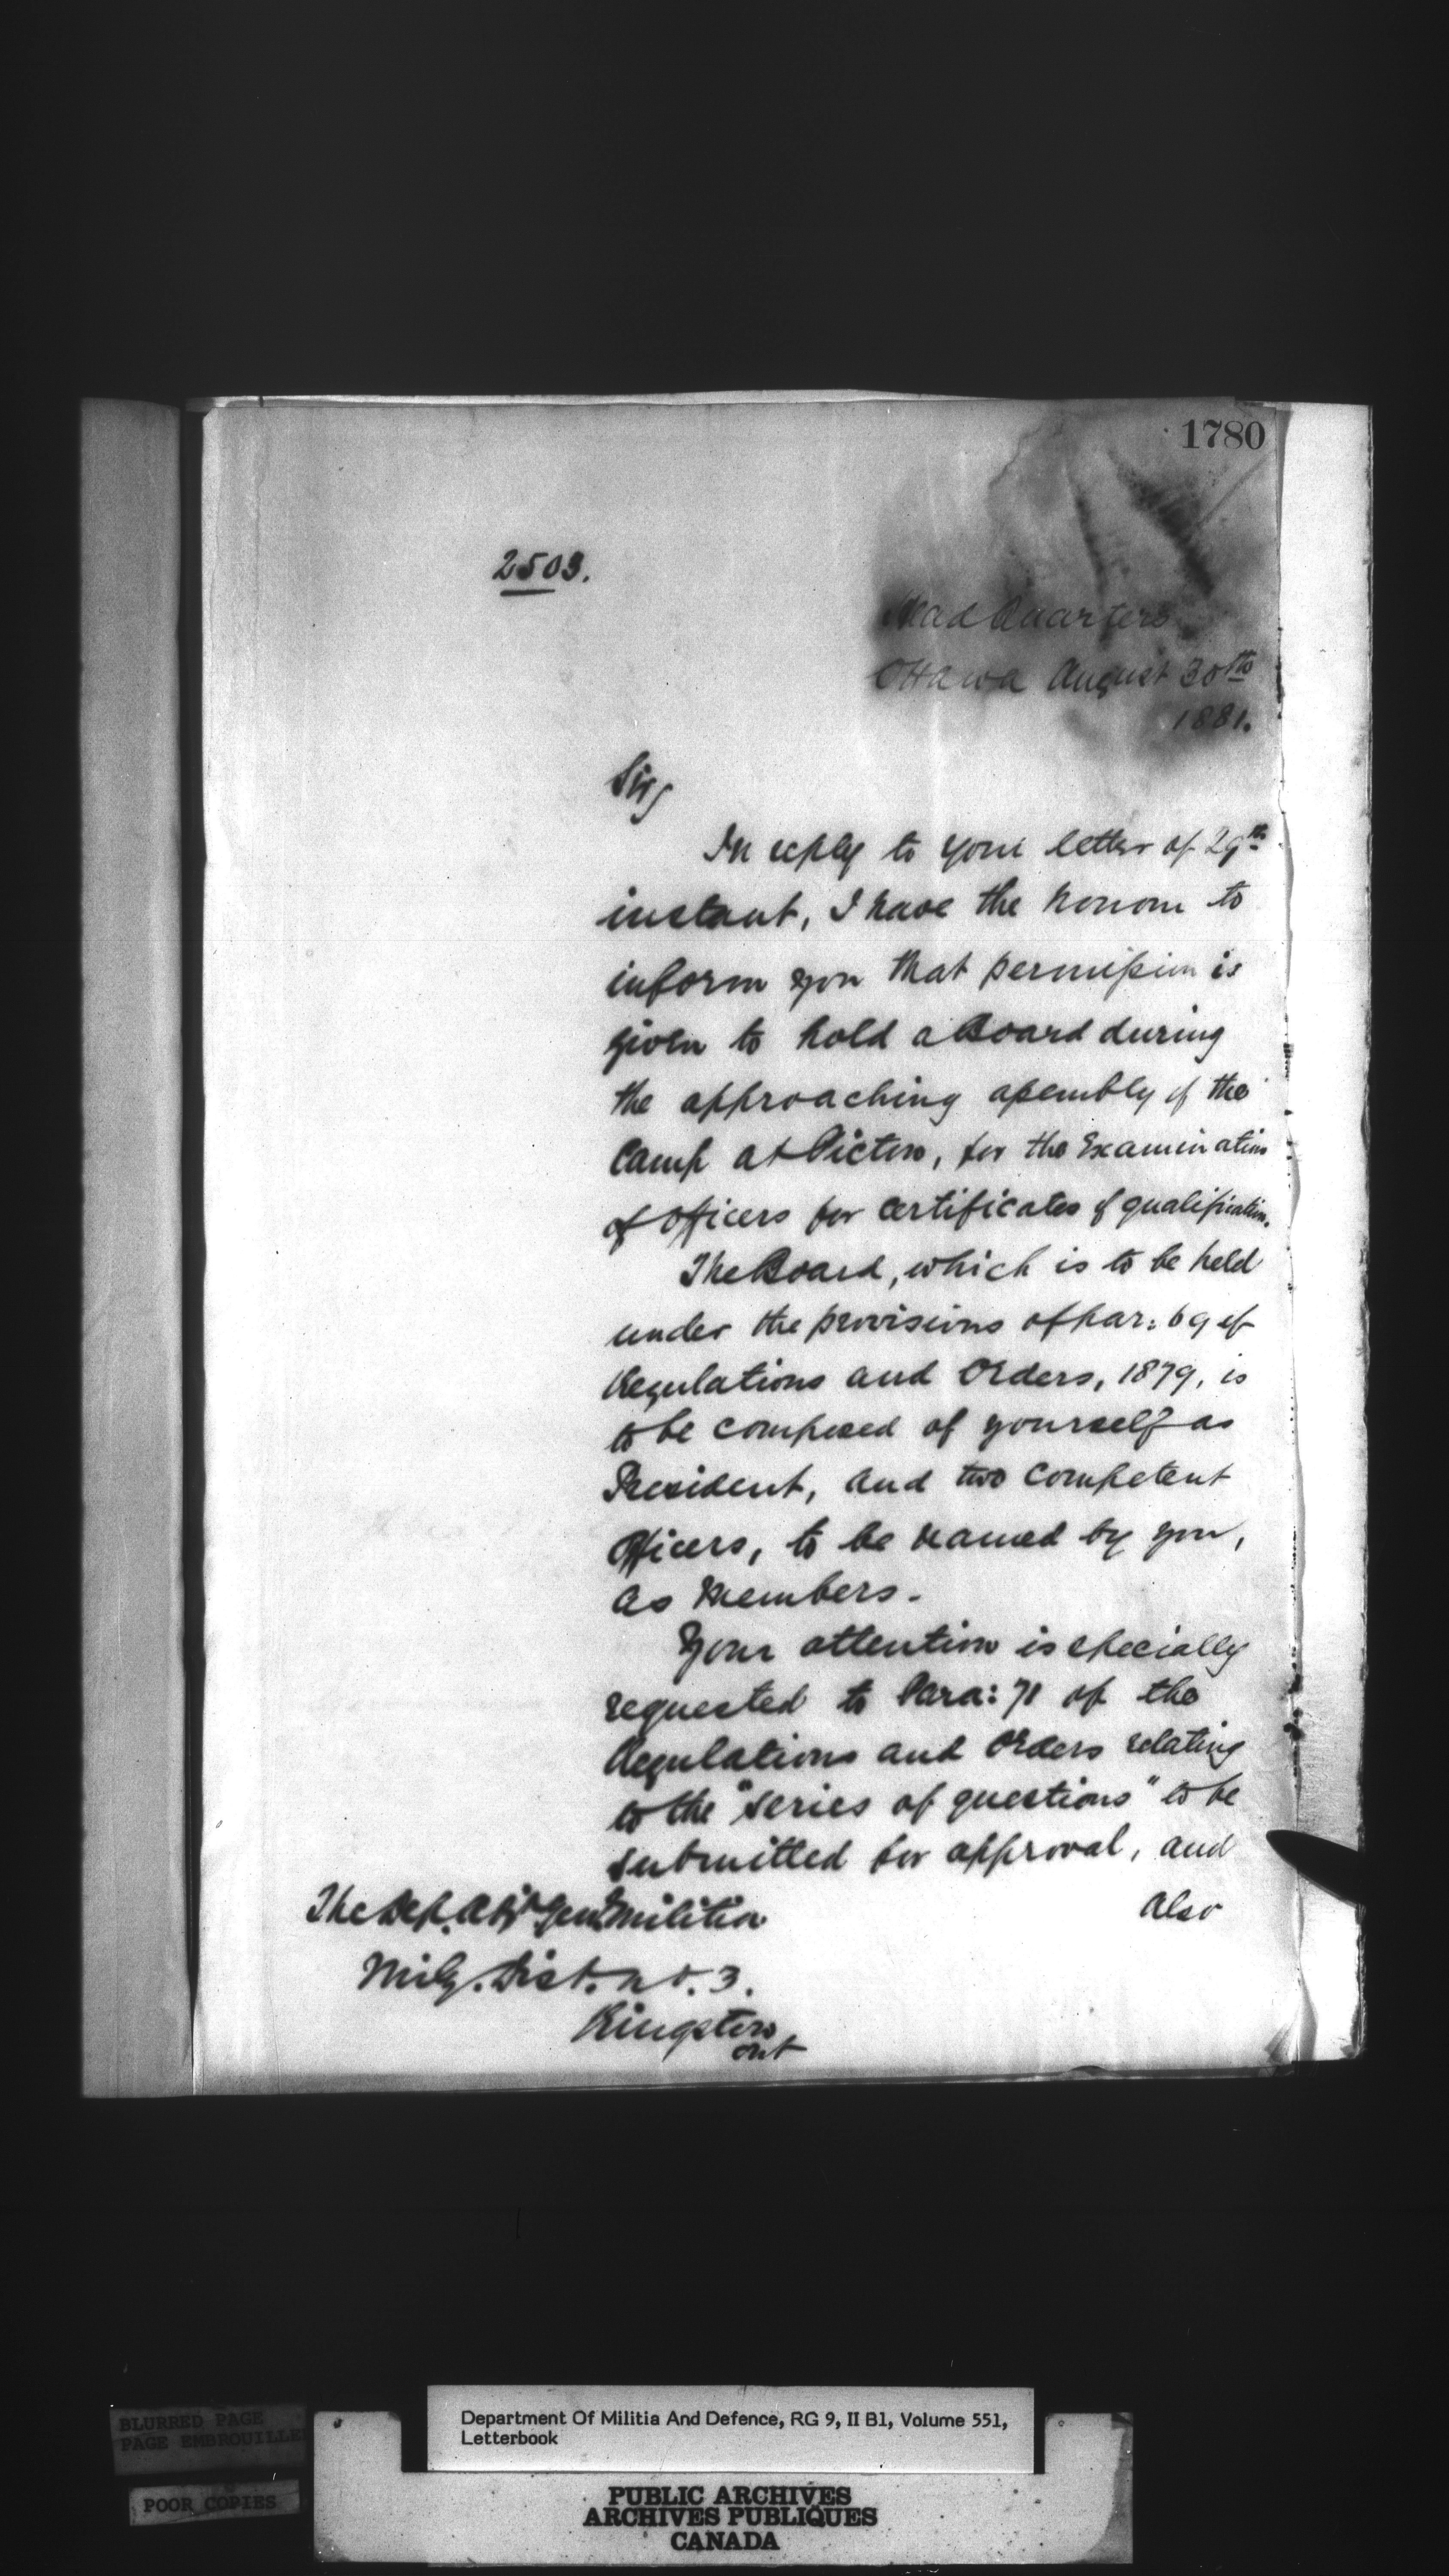 1780
2503.
Head Quarters
Ottawa August 30th
1881.
Sir,
In reply to your letter of 29th
instant, I have the honour to
inform you that permission is
given to hold a Board during
the approaching assembly of the
Camp at Picton, for the Examination
of Officers for certificates of qualification.
The Board, which is to be held
under the provisions of par: 69 of
Regulations and Orders, 1879, is
to be composed of yourself as
President, and two competent
Officers, to be named by you,
as Members.
Your attention is specially
requested to Para: 71 of the
Regulations and Orders relating
to the "series of questions" to be
submitted for approval, and
also
The Dep. Adjt Genl Militia
Mily. Dist. No. 3.
Kingston
Ont
BLURRED PAGE
PAGE EMBROUILLEE
POOR COPIES
Department Of Militia And Defence, RG 9, II B1, Volume 551,
Letterbook
PUBLIC ARCHIVES
ARCHIVES PUBLIQUES
CANADA